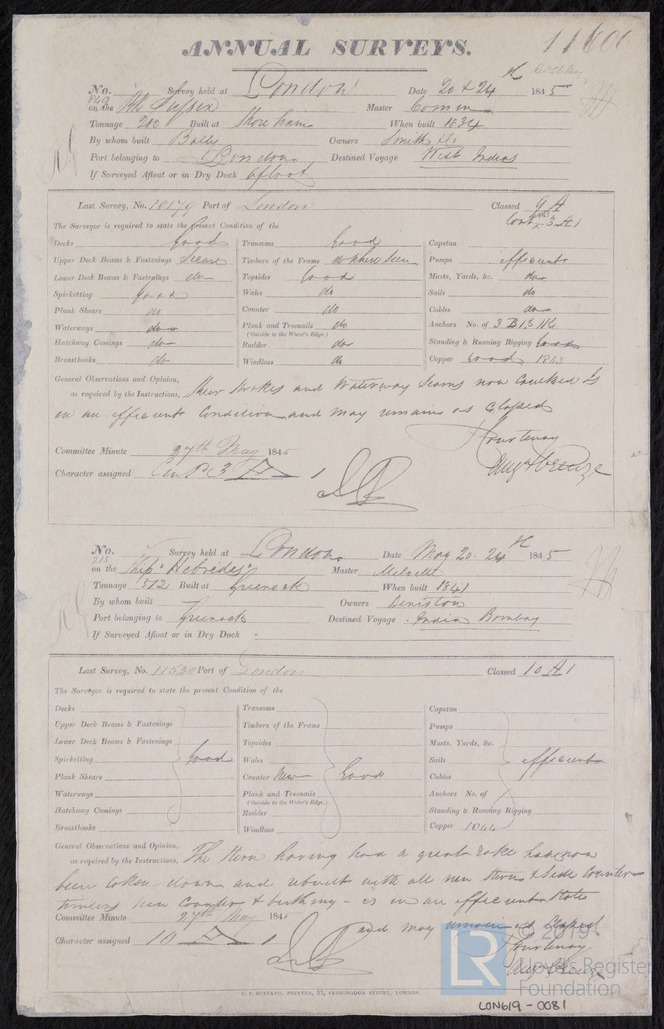 ANNUAL SURVEYS. 11600
No. Survey held at London Date 20 & 24 1845
860 on the Sussex Master
Tonnage 200 Built at Shoreham When built 1834
By whom built Balley Owners Smith
Port belonging to London Destined Voyage West Indies
If Surveyed Afloat or in Dry Dock afloat
Last Survey, No. 10179 Port of London Classed 9 A
Cont 3 A 1
The Surveyor is required to state the present Condition of the
Decks good Transoms Good Capstan
Upper Deck Beams & Fastenings Secure Timbers of the Frame do where seen Pumps efficient
Lower Deck Beams & Fastenings do Topsides Good Masts, Yards, &c. do
Spirketting good Wales do Sails do
Plank Shears do Counter do Cables do
Waterways do Plank and Treenails do Anchors No. of 3 B 1 S 1 K
(Outside to the Water's Edge.)
Hatchway Comings do Rudder do Standing & Running Rigging Good
Breasthooks do Windlass do Copper Good 1843
General Observations and Opinion, Sheer Strakes and Waterway Seams now caulked Is
as required by the Instructions, in an efficient Condition and may remain as Classed
Courtenay
Augt Creuze
Committee Minute 27th May 1845
Character assigned Con Pe 3 A 1
No. Survey held at London Date May 20. 24 1845
215 on the Ship "Hebrides" Master
Tonnage 512 Built at Greenock When built 1841
By whom built Owners Deniston
Port belonging to Greenock Destined Voyage India Bombay
If Surveyed Afloat or in Dry Dock
Last Survey, No. 11530 Port of London Classed 10 A 1
The Surveyor is required to state the present Condition of the
Decks Transoms Capstan
Upper Deck Beams & Fastenings Timbers of the Frame Pumps
Lower Deck Beams & Fastenings Topsides Masts, Yards, &c.
Spirketting good Wales Sails efficient
Plank Shears Counter New Good Cables
Waterways Plank and Treenails Anchors No. of
(Outside to the Water's Edge.)
Hatchway Comings Rudder Standing & Running Rigging
Breasthooks Windlass Copper 1844
General Observations and Opinion,
as required by the Instructions, The Stern having had a great rake has now
been taken down and rebuilt with all new Stern & Side Counter
timbers new Counter & - is in an efficient State
and may remain as Classed
Committee Minute 27th May 1845
Courtenay
Character assigned 10 A 1
Augt Creuze
C. F. SEYFANG, PRINTER, 57, FARRINGDON STREET, LONDON.
LR © 2019
Lloyd's Register
Foundation
LON619-0081